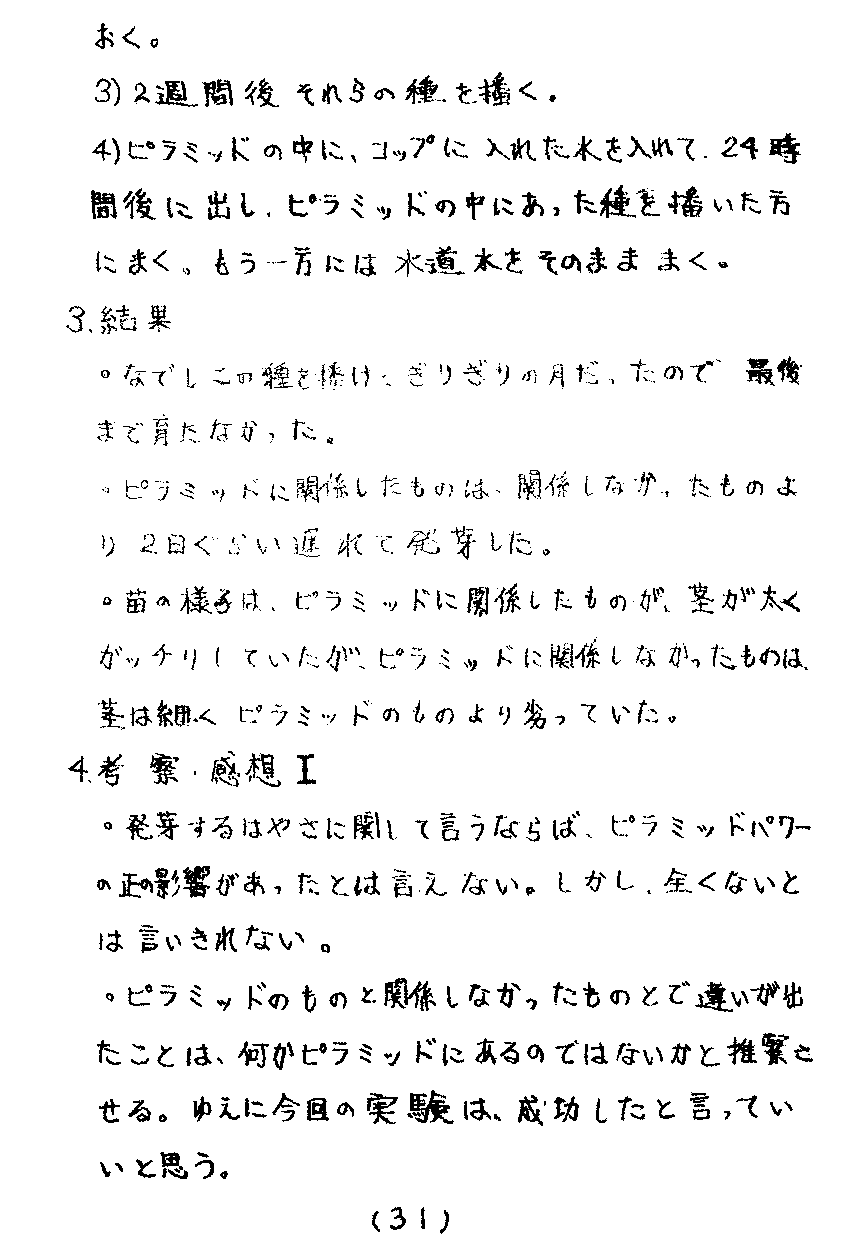 おく。
3)2週間後それらの種を播く。
4)ピラミッドの中に、コップに入れた水を入れて、24時
間後に出し、ピラミッドの中にあった種を播いた方
にまく。もう一方には水道水をそのまままく。
3.結果
。なでしこの種を播け、ぎりぎりの月だったので最後
まで育たなかった。
。ピラミッドに関係したものは、関係しなかったものよ
り2日ぐらい遅れて発芽した。
。苗の様子は、ピラミッドに関係したものが、茎が太く
ガッチリしていたが、ピラミッドに関係しなかったものは、
茎は細くピラミッドのものより劣っていた。
4.考察・感想I
。発芽するはやさに関して言うならば、ピラミッドパワー
の正の影響があったとは言えない。しかし、全くないと
は言いきれない。
。ピラミッドのものと関係しなかったものとで違いが出
たことは、何かピラミッドにあるのではないかと推察さ
せる。ゆえに今回の実験は、成功したと言ってい
いと思う。
(31)